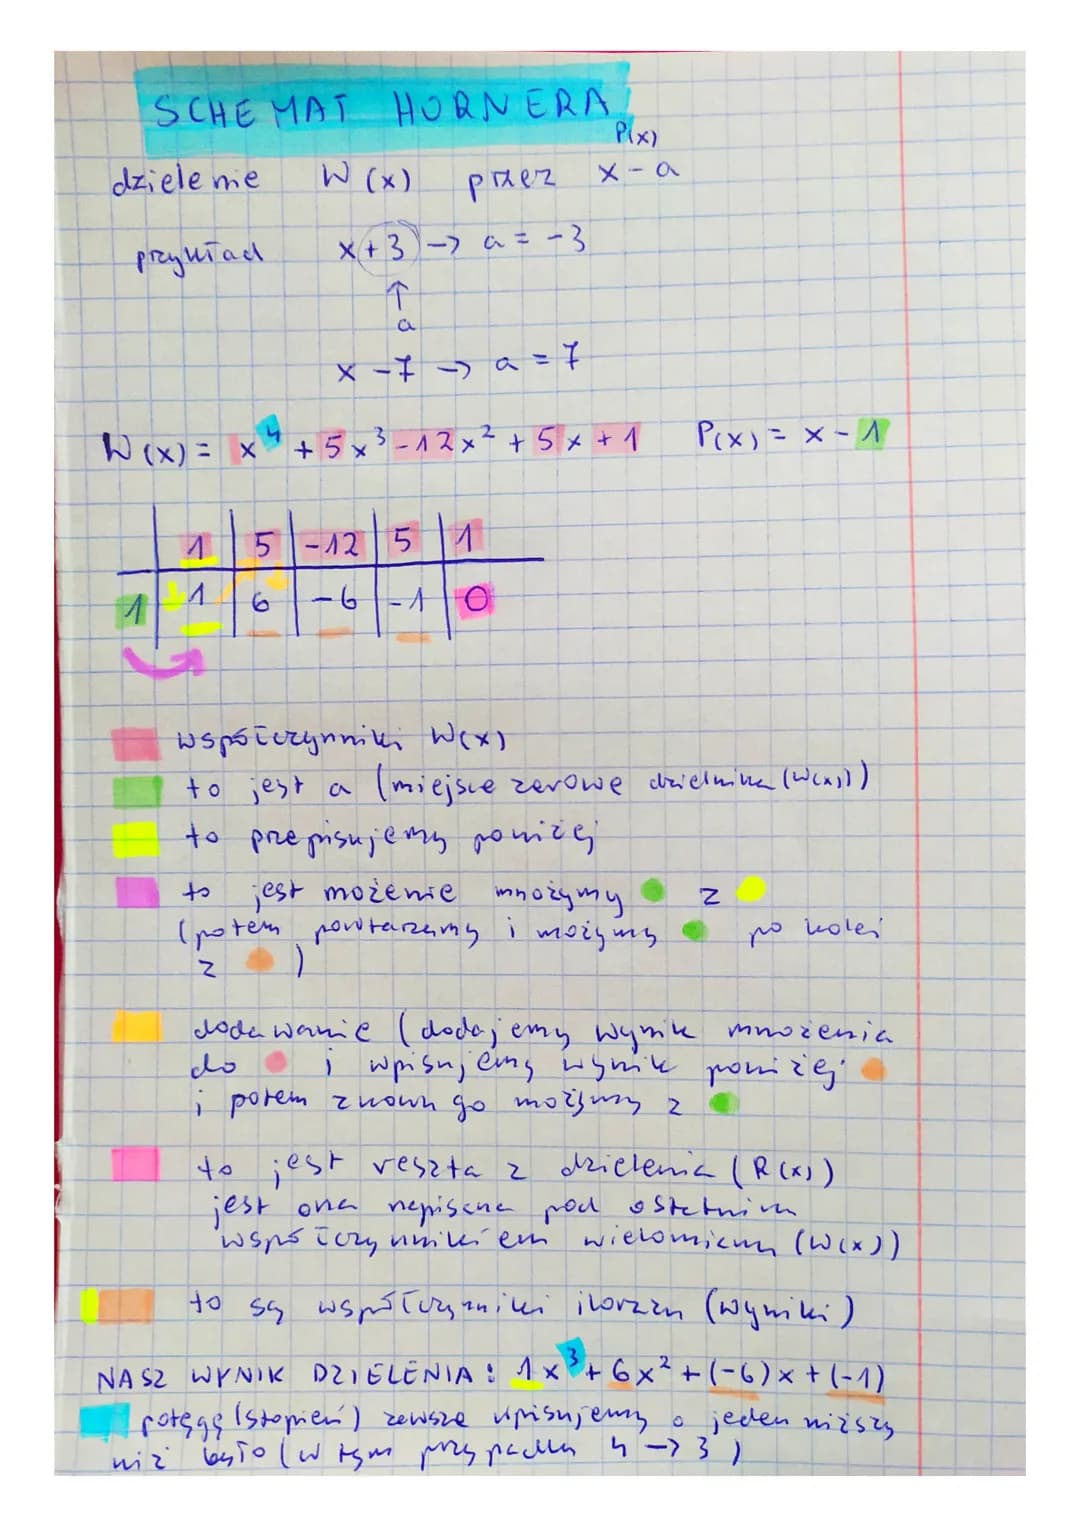 SCHEMAT HORNERA
P(x)
dzielenie W(x) przez x-a
przykład x+3 -> a = -3
↑
a
x-7 -> a = 7
W(x) = x⁴ + 5x³ - 12x² + 5x + 1 P(x) = x - 1
1 5 -12 5 1
1 1 6 -6 -1 0
współczynniki W(x)
to jest a (miejsce zerowe dzielnika (W(x)))
to przepisujemy poniżej
to jest możenie mnożymy z
(potem powtarzamy i możymy po kolei
z )
dodawanie (dodajemy wynik mnożenia
do i wpisujemy wynik poniżej
i potem znowu go możymy z
to jest reszta z dzielenia (R(x))
jest ona napisana pod ostatnim
współczynnikiem wielomianu (W(x))
to są współczynniki ilorazu (wyniki)
NASZ WYNIK DZIELENIA: 1x³ + 6x² + (-6)x + (-1)
potęgę (stopień) zawsze wpisujemy o jeden niższy
niż było (w tym przypadku 4 -> 3)